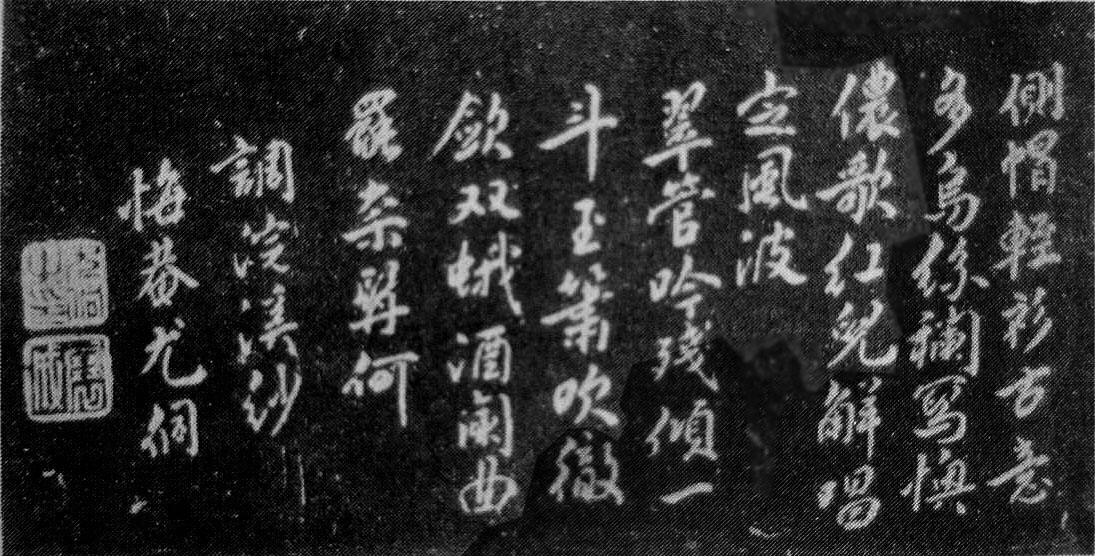 側帽輕衫古意
多烏絲襴寫懊
儂歌紅兒解唱
定風波
翠管吟殘傾一
斗玉簫吹徹
斂双蛾酒闌曲
罷奈君何
調浣溪紗
悔菴尤侗